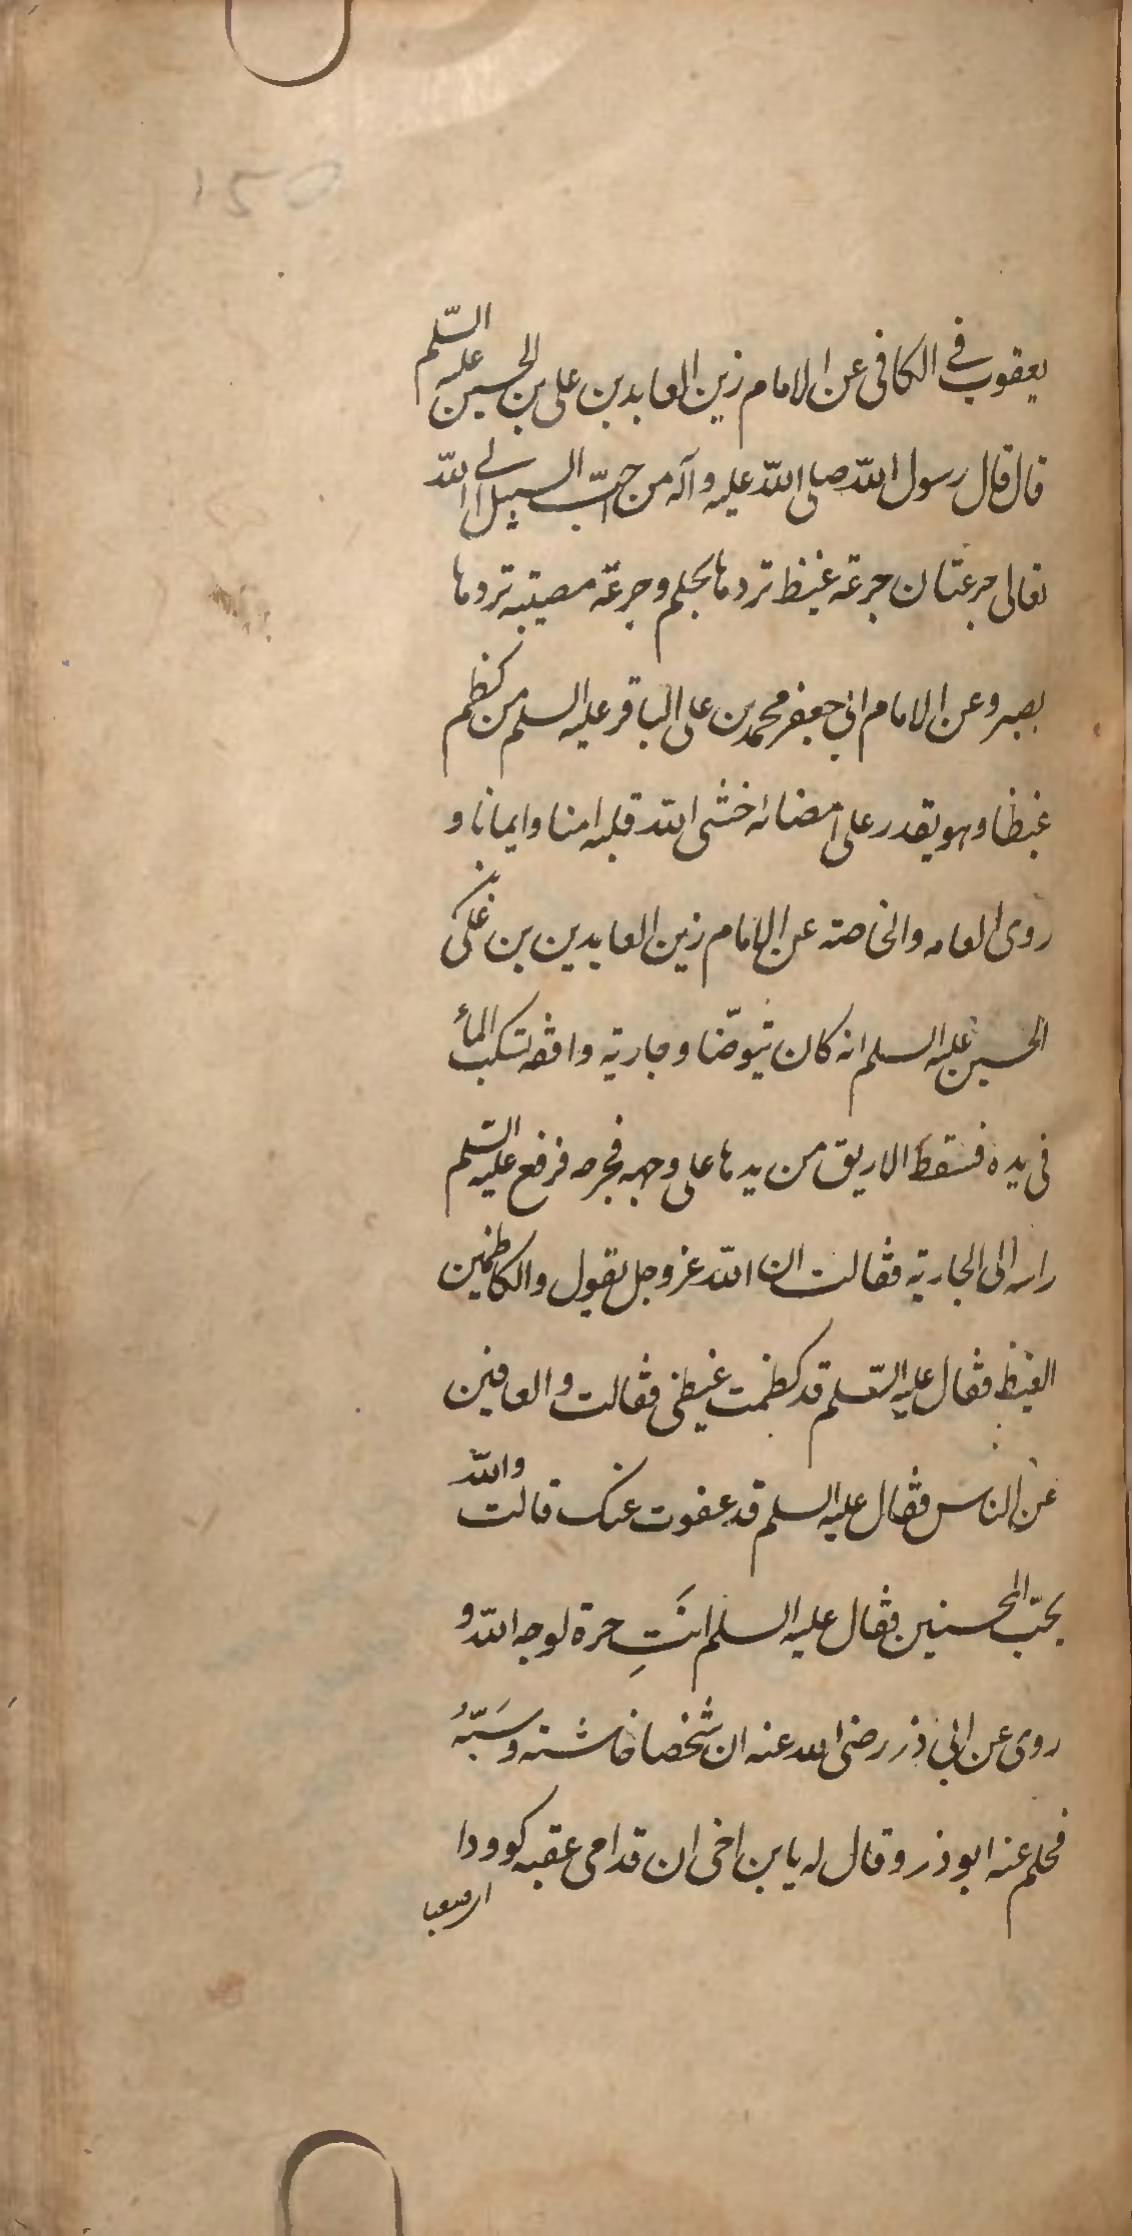 يعقوب في الكافي عن الامام زين العابدين علي بن الحسين عليه السّلم
قال قال رسول اللّه صلى اللّه عليه وآله من احبّ السبيل الى اللّه
تعالى جرعتان جرعة غيظ تردها بحلم وجرعة مصيبة تردها
بصبر وعن الامام ابي جعفر محمد بن على الباقر عليه السلم من كظم
غيظا وهو يقدر على امضائه اخشى اللّه قلبه امنا وايمانا و
روى العامه والخاصة عن الامام زين العابدين بن على بن
الحسين عليه السلم انه كان يتوضّا وجارية واقفة تسكب الماء
في يده فسقط الابريق من يدها على وجهه فجرحه فرفع عليه السّلم
راسه الى الجارية فقالت ان اللّه عز وجل يقول والكاظمين
الغيظ فقال عليه السّلم قد كظمت غيظي فقالت والعافين
عن الناس فقال عليه السلم قد عفوت عنك قالت واللّه
يحبّ المحسنين فقال عليه السلم انتِ حرة لوجه اللّه و
روى عن ابي ذر رضي الله عنه ان شخصا فاشته وسَبّهُ
فحلم عنه ابو ذر وقال له يا بن اخي ان قدامي عقبه كوودا